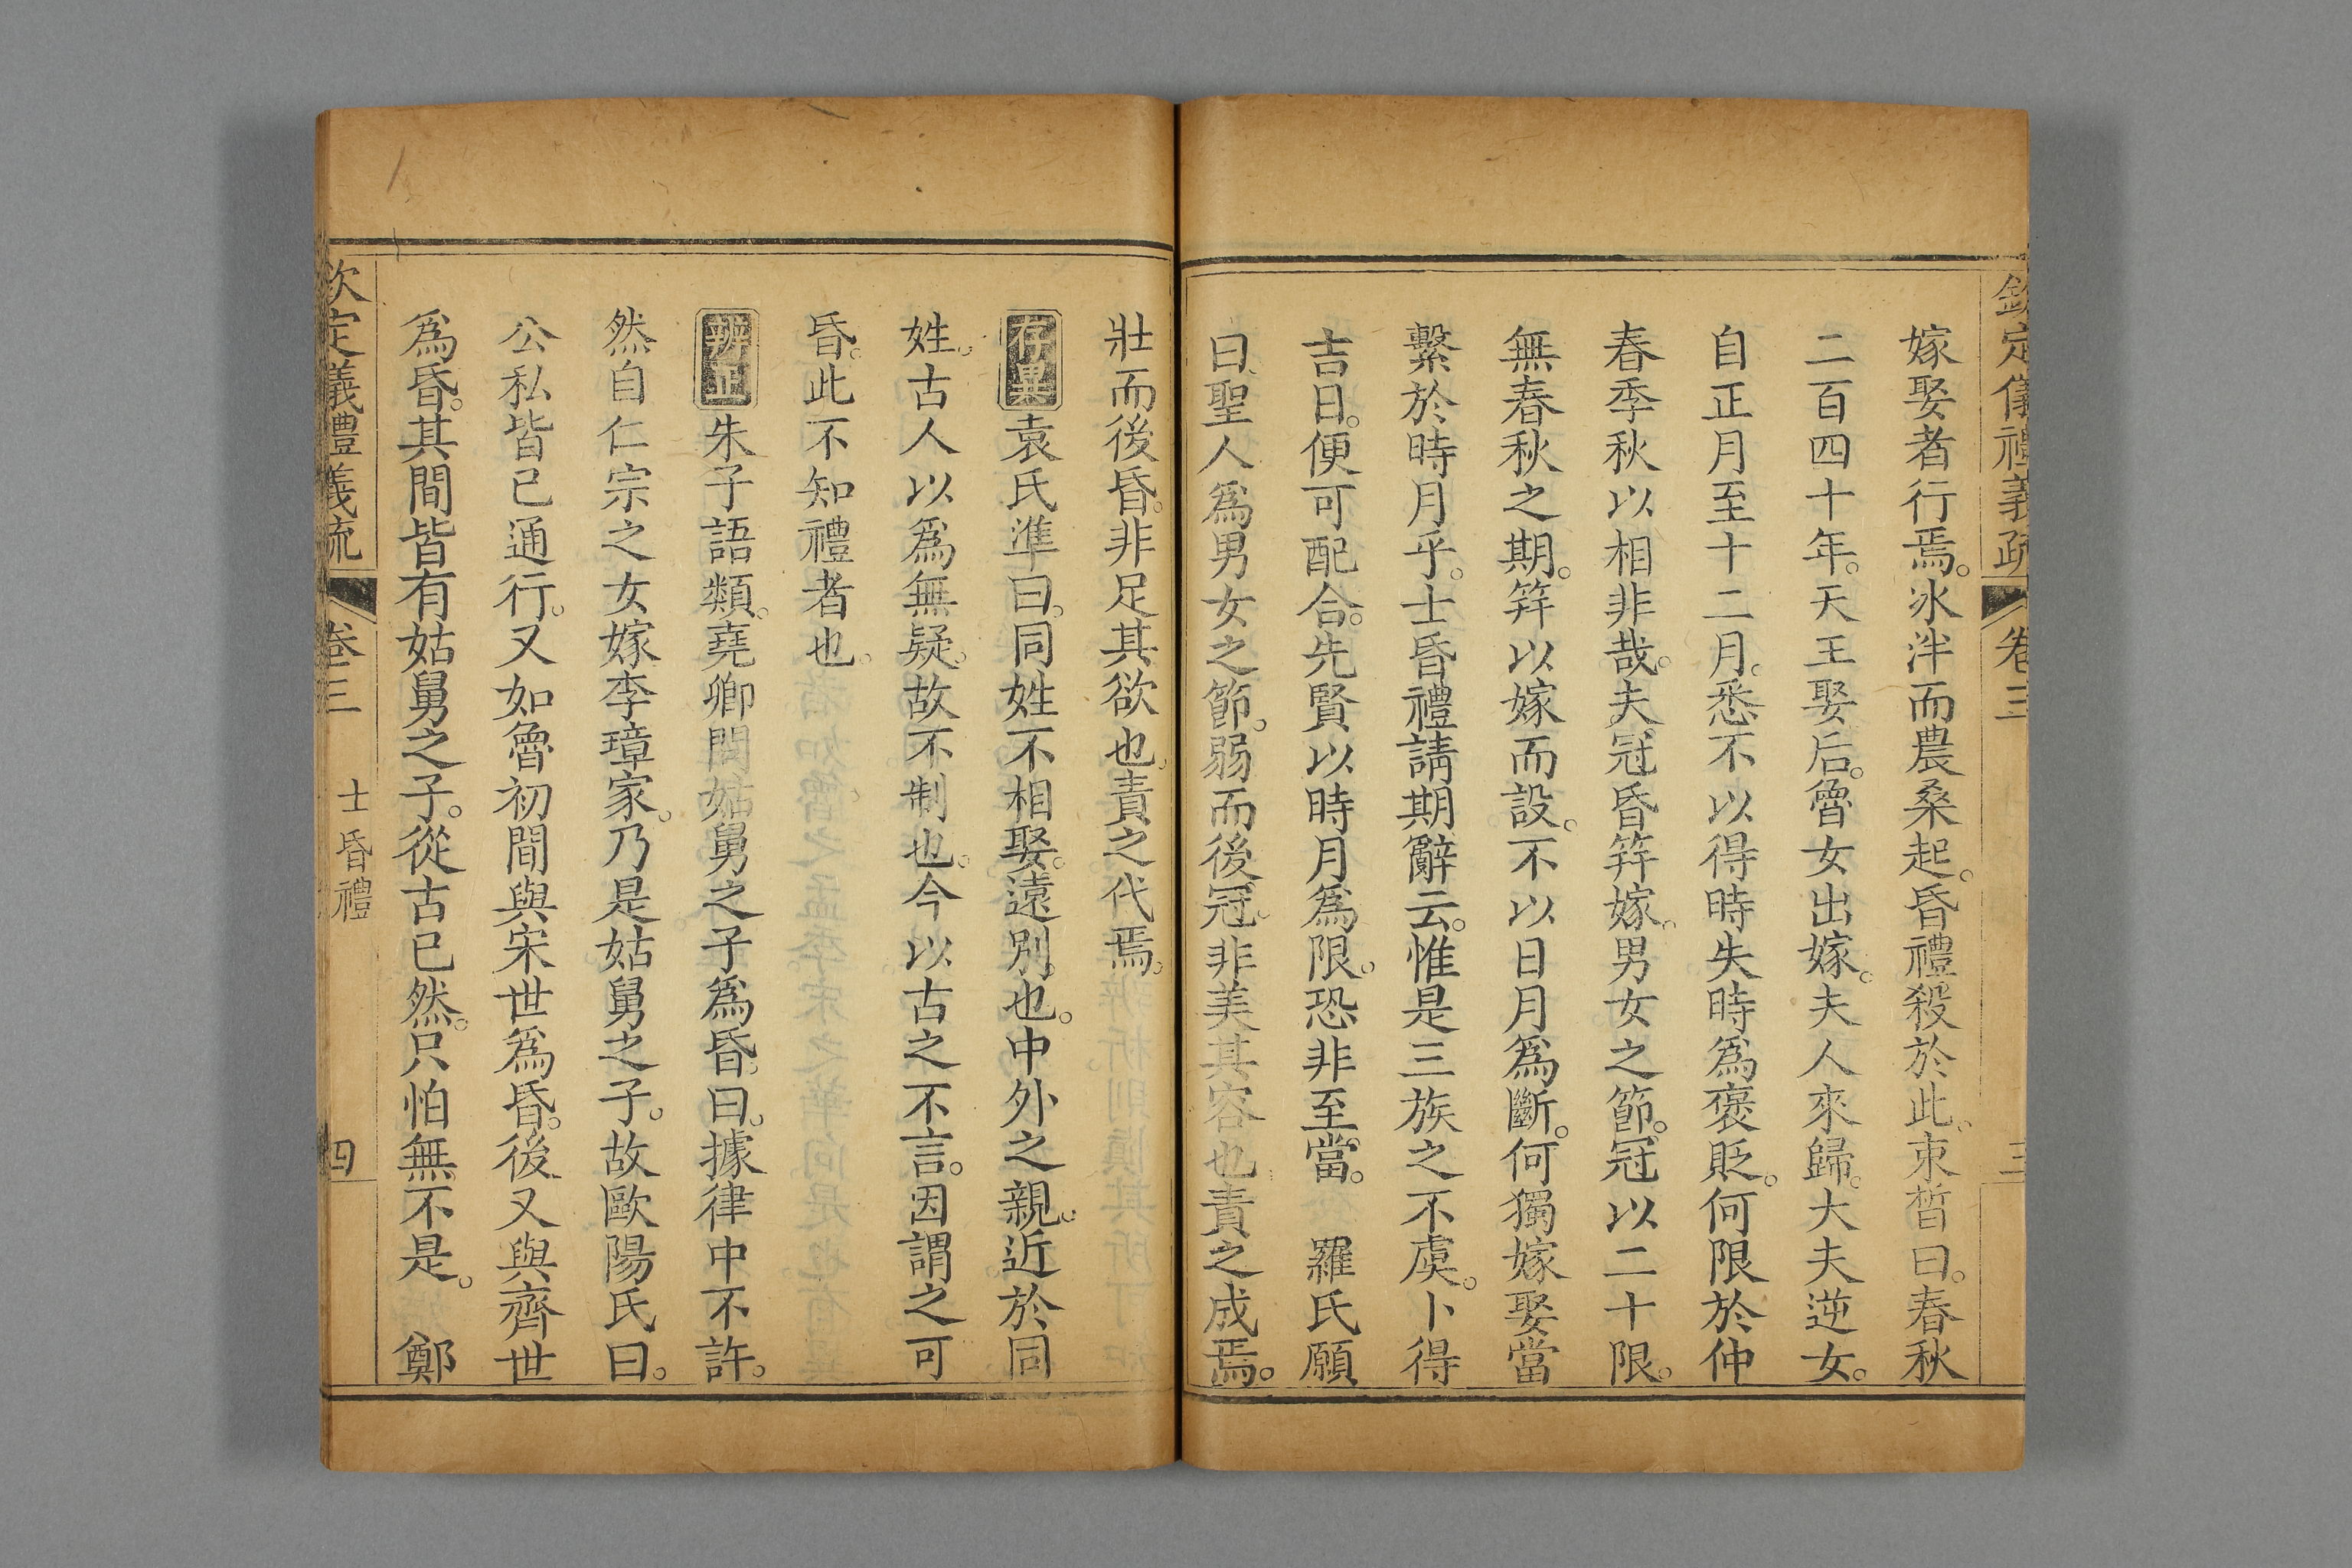 欽定儀禮義疏 卷三 三
嫁娶者行焉。冰泮而農桑起。昏禮殺於此。束晳曰。春秋
二百四十年。天王娶后。魯女出嫁。夫人來歸。大夫逆女。
自正月至十二月。悉不以得時失時爲褒貶。何限於仲
春季秋以相非哉。夫冠昏筓嫁。男女之節。冠以二十限。
無春秋之期。筓以嫁而設。不以日月爲斷。何獨嫁娶當
繫於時月乎。士昏禮請期辭云。惟是三族之不虞。卜得
吉日。便可配合。先賢以時月爲限。恐非至當。 羅氏願
曰聖人爲男女之節。弱而後冠。非美其容也責之成焉。
壯而後昏。非足其欲也責之代焉。
存異 袁氏準曰。同姓不相娶。遠別也。中外之親。近於同
姓。古人以爲無疑。故不制也。今以古之不言。因謂之可
昏。此不知禮者也。
辨正 朱子語類。堯卿問姑舅之子爲昏。曰。據律中不許。
然自仁宗之女嫁李璋家。乃是姑舅之子。故歐陽氏曰。
公私皆已通行。又如魯初間與宋世爲昏。後又與齊世
爲昏。其間皆有姑舅之子。從古已然。只怕無不是。 鄭
欽定義禮義疏 卷三 士昏禮 四